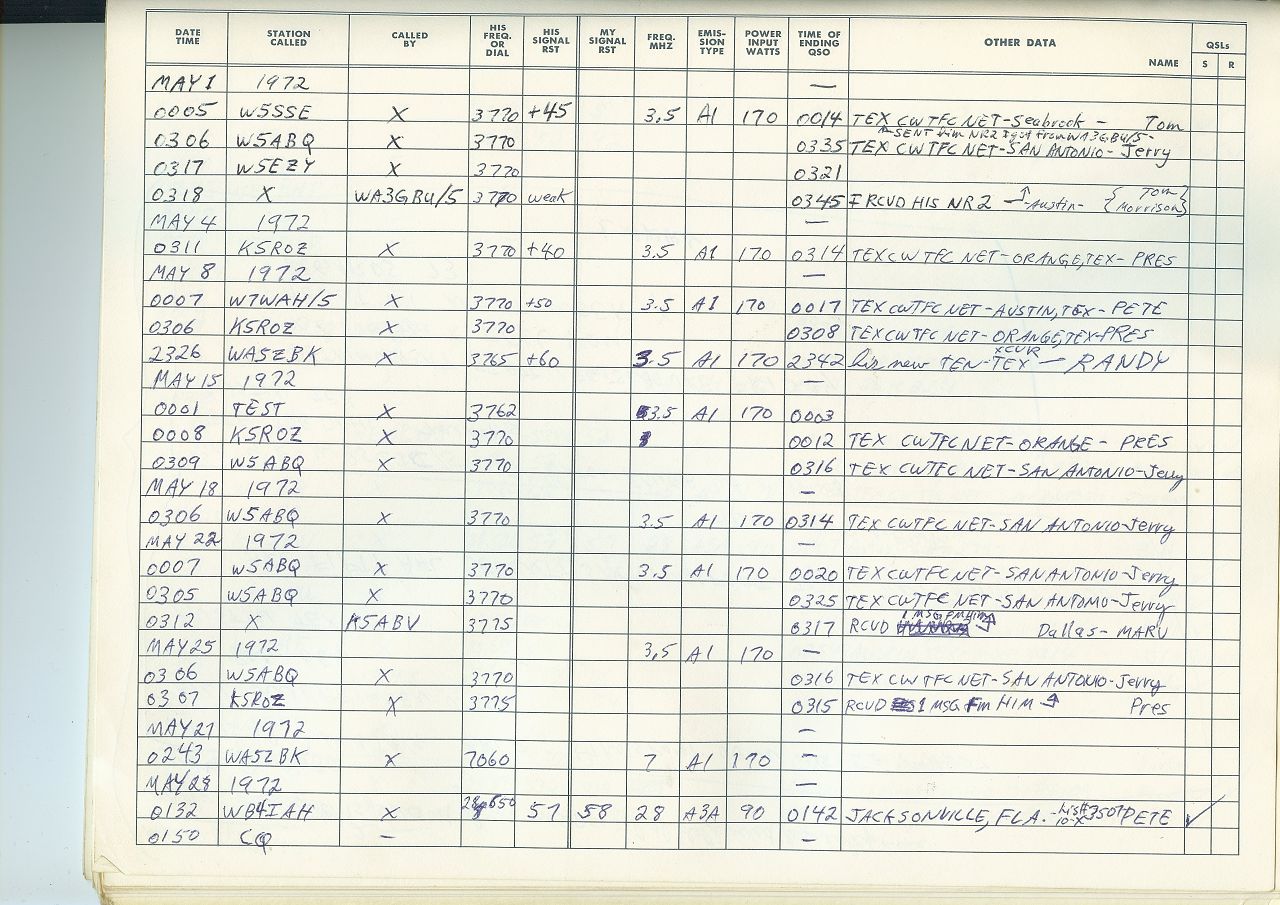 DATE TIME STATION CALLED CALLED BY HIS FREQ. OR DIAL HIS SIGNAL RST MY SIGNAL RST FREQ. MHZ EMIS- SION TYPE POWER INPUT WATTS TIME OF ENDING QSO OTHER DATA NAME QSLs S R
MAY 1 1972 —
0005 W5SSE X 3770 +45 3.5 A1 170 0014 TEX CW TFC NET-Seabrook - Tom
SENT him NR2 I got from WA3GBU/5-
0306 W5ABQ X 3770 0335 TEX CW TFC NET-SAN ANTONIO-Jerry
0317 W5EZY X 3770 0321
0318 X WA3GBU/5 3770 weak 0345 I RCVD HIS NR2 Austin- { Tom Morrison }
MAY 4 1972 —
0311 K5ROZ X 3770 +40 3.5 A1 170 0314 TEX CW TFC NET-ORANGE,TEX- PRES
MAY 8 1972 —
0007 W7WAH/5 X 3770 +50 3.5 A1 170 0017 TEX CW TFC NET-AUSTIN,TEX- PETE
0306 K5ROZ X 3770 0308 TEX CW TFC NET-ORANGE,TEX-PRES
2326 WA5ZBK X 3765 +60 3.5 A1 170 2342 his new TEN-TEX XCVR — RANDY
MAY 15 1972 —
0001 TEST X 3762 3.5 A1 170 0003
0008 K5ROZ X 3770 0012 TEX CW TFC NET-ORANGE - PRES
0309 W5ABQ X 3770 0316 TEX CW TFC NET-SAN ANTONIO-Jerry
MAY 18 1972 —
0306 W5ABQ X 3770 3.5 A1 170 0314 TEX CW TFC NET-SAN ANTONIO-Jerry
MAY 22 1972 —
0007 W5ABQ X 3770 3.5 A1 170 0020 TEX CW TFC NET-SAN ANTONIO-Jerry
0305 W5ABQ X 3770 0325 TEX CW TFC NET-SAN ANTONIO-Jerry
0312 X K5ABV 3775 0317 RCVD 1 MSG FM HIM Dallas- MARV
MAY 25 1972 3.5 A1 170 —
0306 W5ABQ X 3770 0316 TEX CW TFC NET-SAN ANTONIO-Jerry
0307 K5ROZ X 3775 0315 RCVD 1 MSG Fm HIM Pres
MAY 27 1972 —
0243 WA5ZBK X 7060 7 A1 170 -
MAY 28 1972 —
0132 WB4IAH X 28,650 57 58 28 A3A 90 0142 JACKSONVILLE, FLA. -his 10-X # 3507 PETE ✓
0150 CQ — —